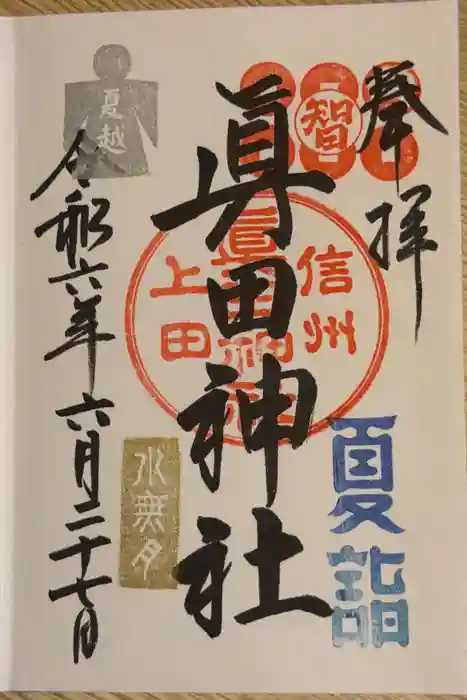 奉拝
智
眞田神社
信州
眞田神社
上田
夏詣
夏越
水無月
令和六年六月二十七日